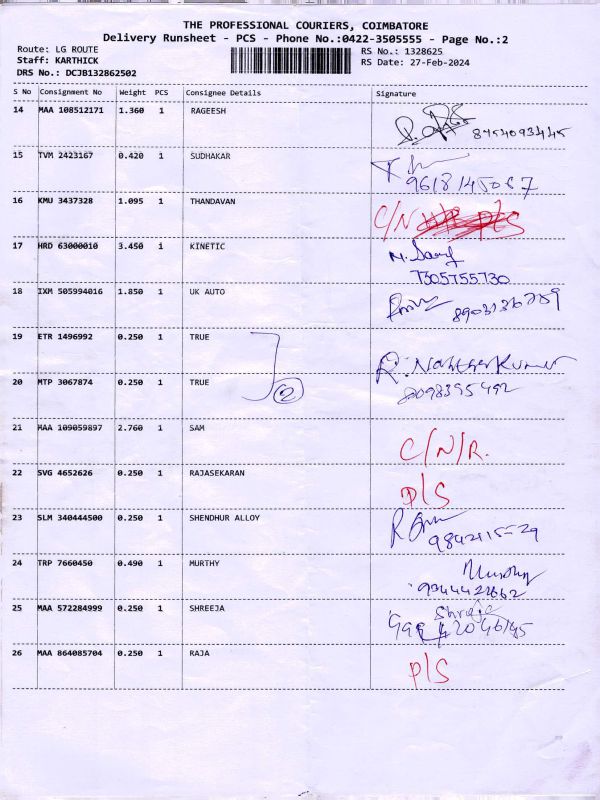 THE PROFESSIONAL COURIERS, COIMBATORE
Delivery Runsheet - PCS - Phone No.:0422-3505555 - Page No.:2
Route: LG ROUTE
Staff: KARTHICK
DRS No.: DCJB132862502
RS No.: 1328625
RS Date: 27-Feb-2024
S No Consignment No Weight PCS Consignee Details Signature
14 MAA 108512171 1.360 1 RAGEESH
15 TVM 2423167 0.420 1 SUDHAKAR
16 KMU 3437328 1.095 1 THANDAVAN C/N
17 HRD 63000010 3.450 1 KINETIC
7305755730
18 IXM 505994016 1.850 1 UK AUTO
19 ETR 1496992 0.250 1 TRUE
20 MTP 3067874 0.250 1 TRUE 2
21 MAA 109059897 2.760 1 SAM C/N/R.
22 SVG 4652626 0.250 1 RAJASEKARAN D/S
23 SLM 340444500 0.250 1 SHENDHUR ALLOY
24 TRP 7660450 0.490 1 MURTHY Murthy
25 MAA 572284999 0.250 1 SHREEJA Shreeja
26 MAA 864085704 0.250 1 RAJA D/S